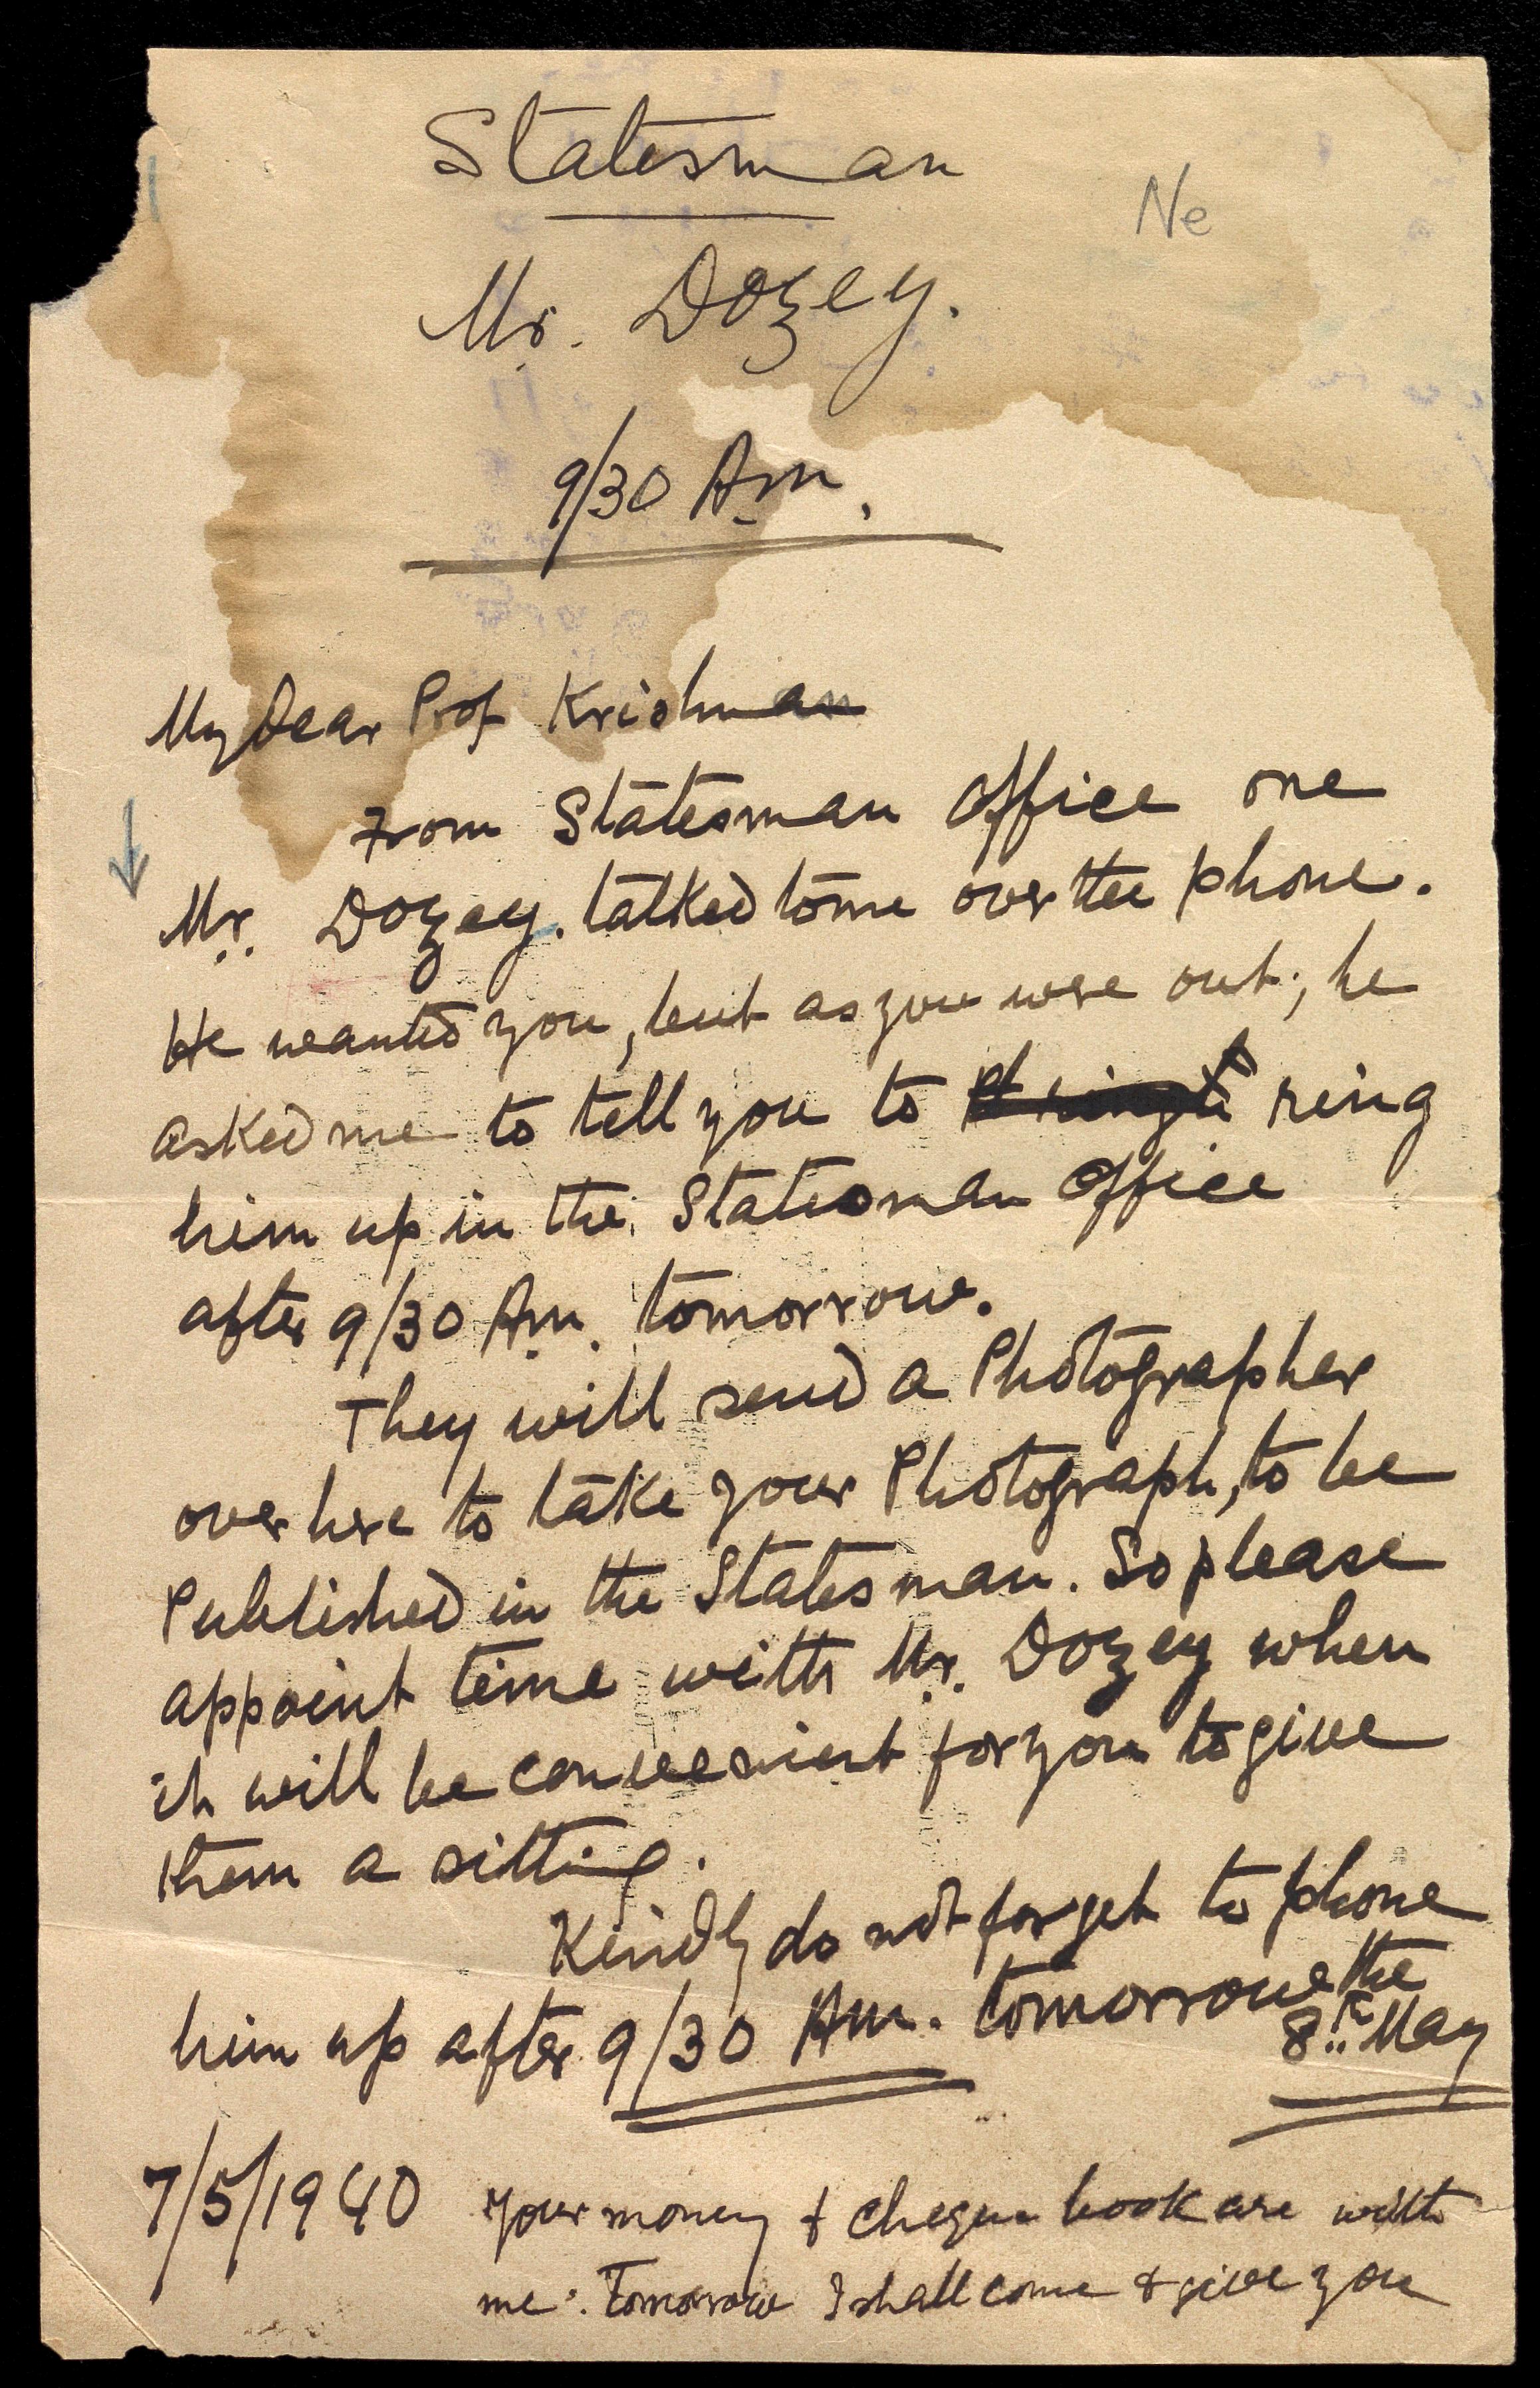 Statesman
Ne
Mr. Dozey.
9/30 Am.
My Dear Prof Krishnan
From Statesman Office one
Mr. Dozey. talked to me over the phone.
He wanted you, but as you were out, he
asked me to tell you to ring
him up in the Statesman Office
after 9/30 Am. tomorrow.
They will send a Photographer
over here to take your Photograph, to be
Published in the Statesman. So please
appoint time with Mr. Dozey when
it will be convenient for you to give
them a sitting.
Kindly do not forget to phone
him up after 9/30 Am. tomorrow the
8th May
7/5/1940 Your money & cheque book are with
me. Tomorrow I shall come & give you